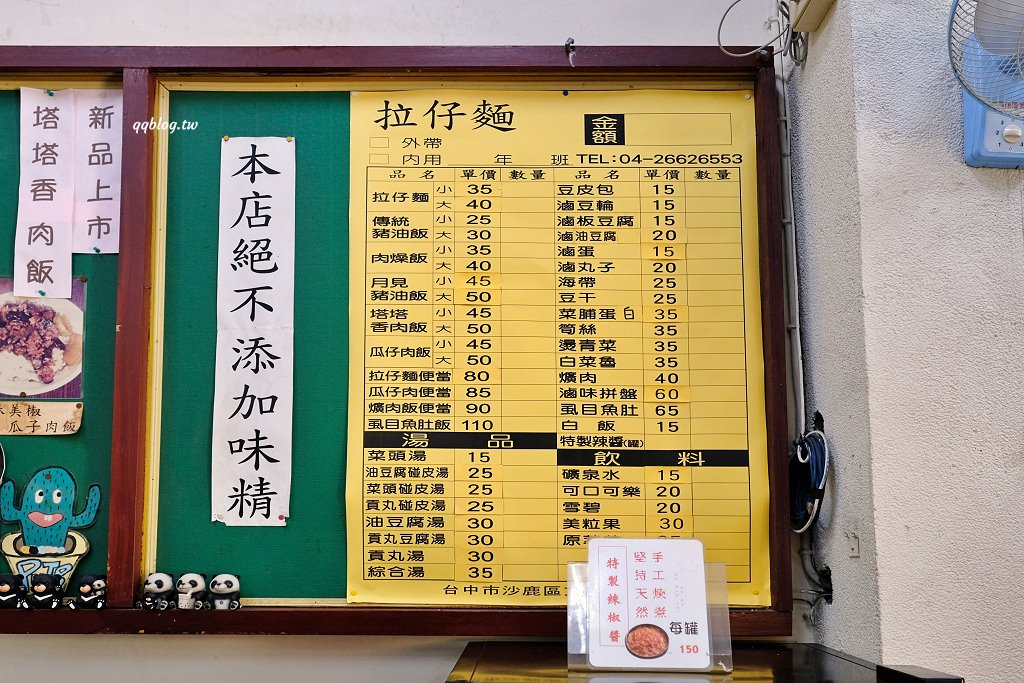 qqblog.tw
新品上市
塔塔香肉飯
美椒
瓜子肉飯
本店絕不添加味精
拉仔麵
金額
外帶
內用 年 班 TEL:04-26626553
品名 單價 數量 品名 單價 數量
拉仔麵 小 35
大 40
傳統豬油飯 小 25
大 30
肉燥飯 小 35
大 40
月見豬油飯 小 45
大 50
塔塔香肉飯 小 45
大 50
瓜仔肉飯 小 45
大 50
拉仔麵便當 80
瓜仔肉便當 85
爌肉飯便當 90
虱目魚肚飯 110
湯品
菜頭湯 15
油豆腐碰皮湯 25
菜頭碰皮湯 25
貢丸碰皮湯 25
油豆腐湯 30
貢丸豆腐湯 30
貢丸湯 30
綜合湯 35
豆皮包 15
滷豆輪 15
滷板豆腐 15
滷油豆腐 20
滷蛋 15
滷丸子 20
海帶 25
豆干 25
菜脯蛋 35
筍絲 35
燙青菜 35
白菜魯 35
爌肉 40
滷味拼盤 60
虱目魚肚 65
白飯 15
特製辣醬(罐)
飲料
礦泉水 15
可口可樂 20
雪碧 20
美粒果 30
原
台中市沙鹿區
特製辣椒醬
堅持天然
手工煉煮
每罐
150